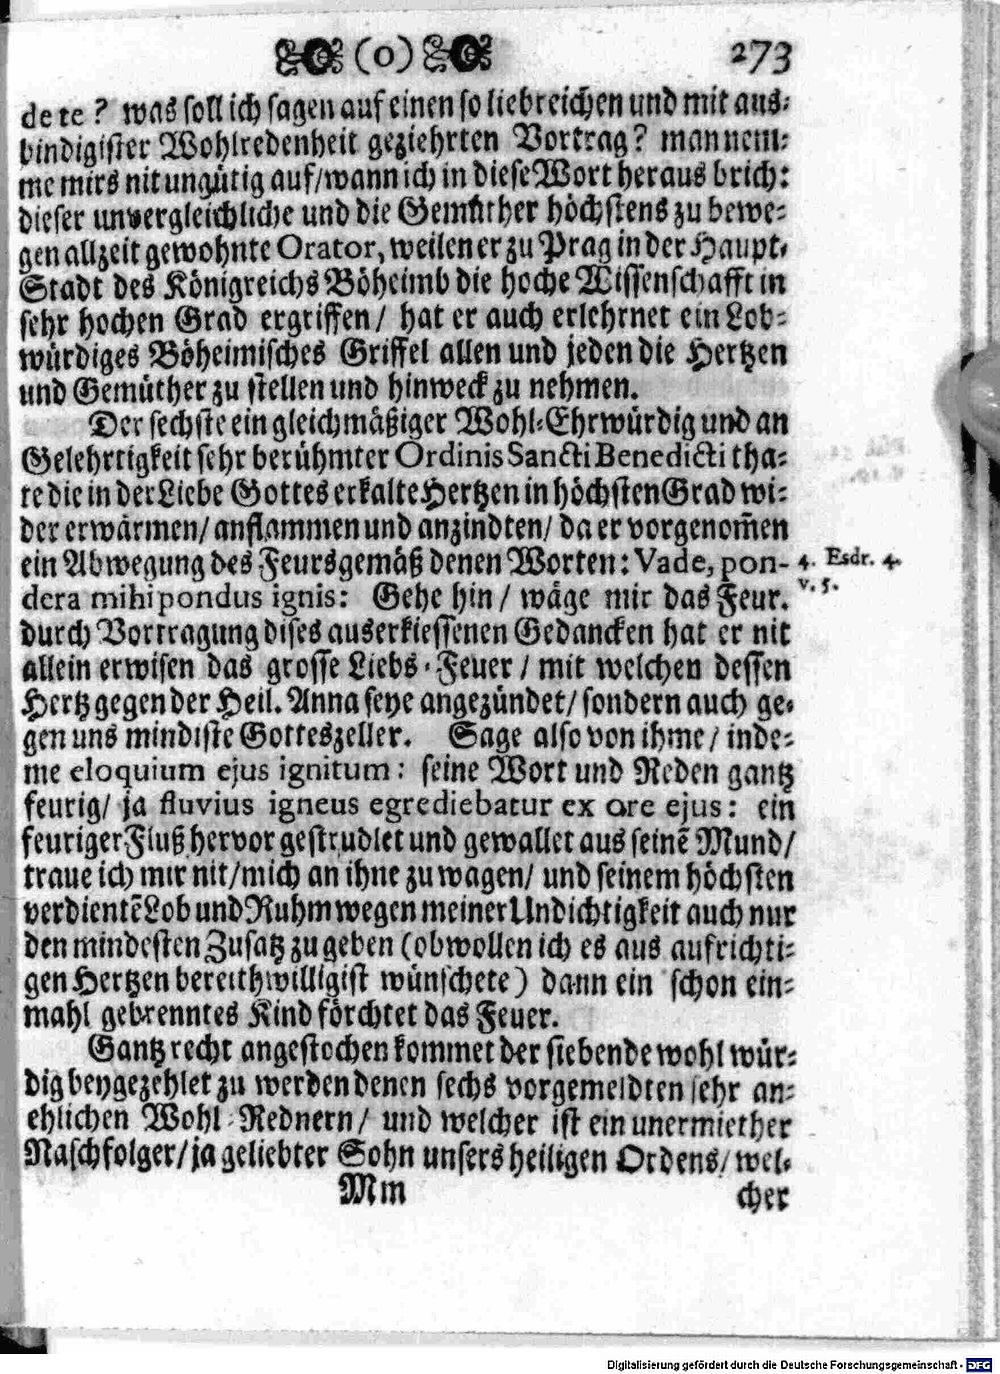 (0) 273
de te? was soll ich sagen auf einen so liebreichen und mit aus-
bindigister Wohlredenheit geziehrten Vortrag? man nem-
me mirs nit ungütig auf/ wann ich in diese Wort heraus brich:
dieser unvergleichliche und die Gemüther höchstens zu bewe-
gen allzeit gewohnte Orator, weilen er zu Prag in der Haupt-
Stadt des Königreichs Böheimb die hoche Wissenschafft in
sehr hochen Grad ergriffen/ hat er auch erlehrnet ein Lob-
würdiges Böheimisches Griffel allen und jeden die Hertzen
und Gemüther zu stellen und hinweck zu nehmen.
Der sechste ein gleichmäßiger Wohl-Ehrwürdig und an
Gelehrtigkeit sehr berühmter Ordinis Sancti Benedicti tha-
te die in der Liebe Gottes erkalte Hertzen in höchsten Grad wi-
der erwärmen/ anflammen und anzindten/ da er vorgenom̃en
ein Abwegung des Feurs gemäß denen Worten: Vade, pon-
4. Esdr. 4.
dera mihi pondus ignis: Gehe hin/ wäge mir das Feur.
v. 5.
durch Vortragung dises auserkiessenen Gedancken hat er nit
allein erwisen das grosse Liebs-Feuer/ mit welchen dessen
Hertz gegen der Heil. Anna seye angezündet/ sondern auch ge-
gen uns mindiste Gotteszeller. Sage also von ihme/ inde-
me eloquium ejus ignitum: seine Wort und Reden gantz
feurig/ ja fluvius igneus egrediebatur ex ore ejus: ein
feuriger Fluß hervor gestrudlet und gewallet aus seinē Mund/
traue ich mir nit/ mich an ihne zu wagen/ und seinem höchsten
verdientē Lob und Ruhm wegen meiner Undichtigkeit auch nur
den mindesten Zusatz zu geben (obwollen ich es aus aufrichti-
gen Hertzen bereithwilligist wünschete) dann ein schon ein-
mahl gebrenntes Kind förchtet das Feuer.
Gantz recht angestochen kommet der siebende wohl wür-
dig beygezehlet zu werden denen sechs vorgemeldten sehr an-
ehlichen Wohl-Rednern/ und welcher ist ein unermiether
Naschfolger/ ja geliebter Sohn unsers heiligen Ordens/ wel-
Mm cher
Digitalisierung gefördert durch die Deutsche Forschungsgemeinschaft - DFG